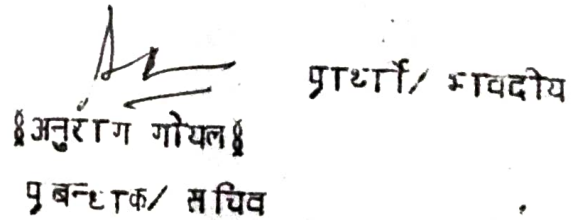 प्रार्थी/ भावदीय
§अनुराग गोयल§
प्रबन्धक/ सचिव